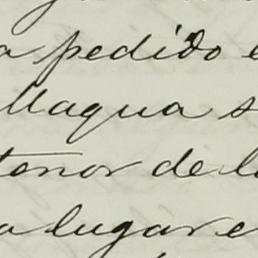 a pedido e
Maqua s
tenor de l
a lugar e